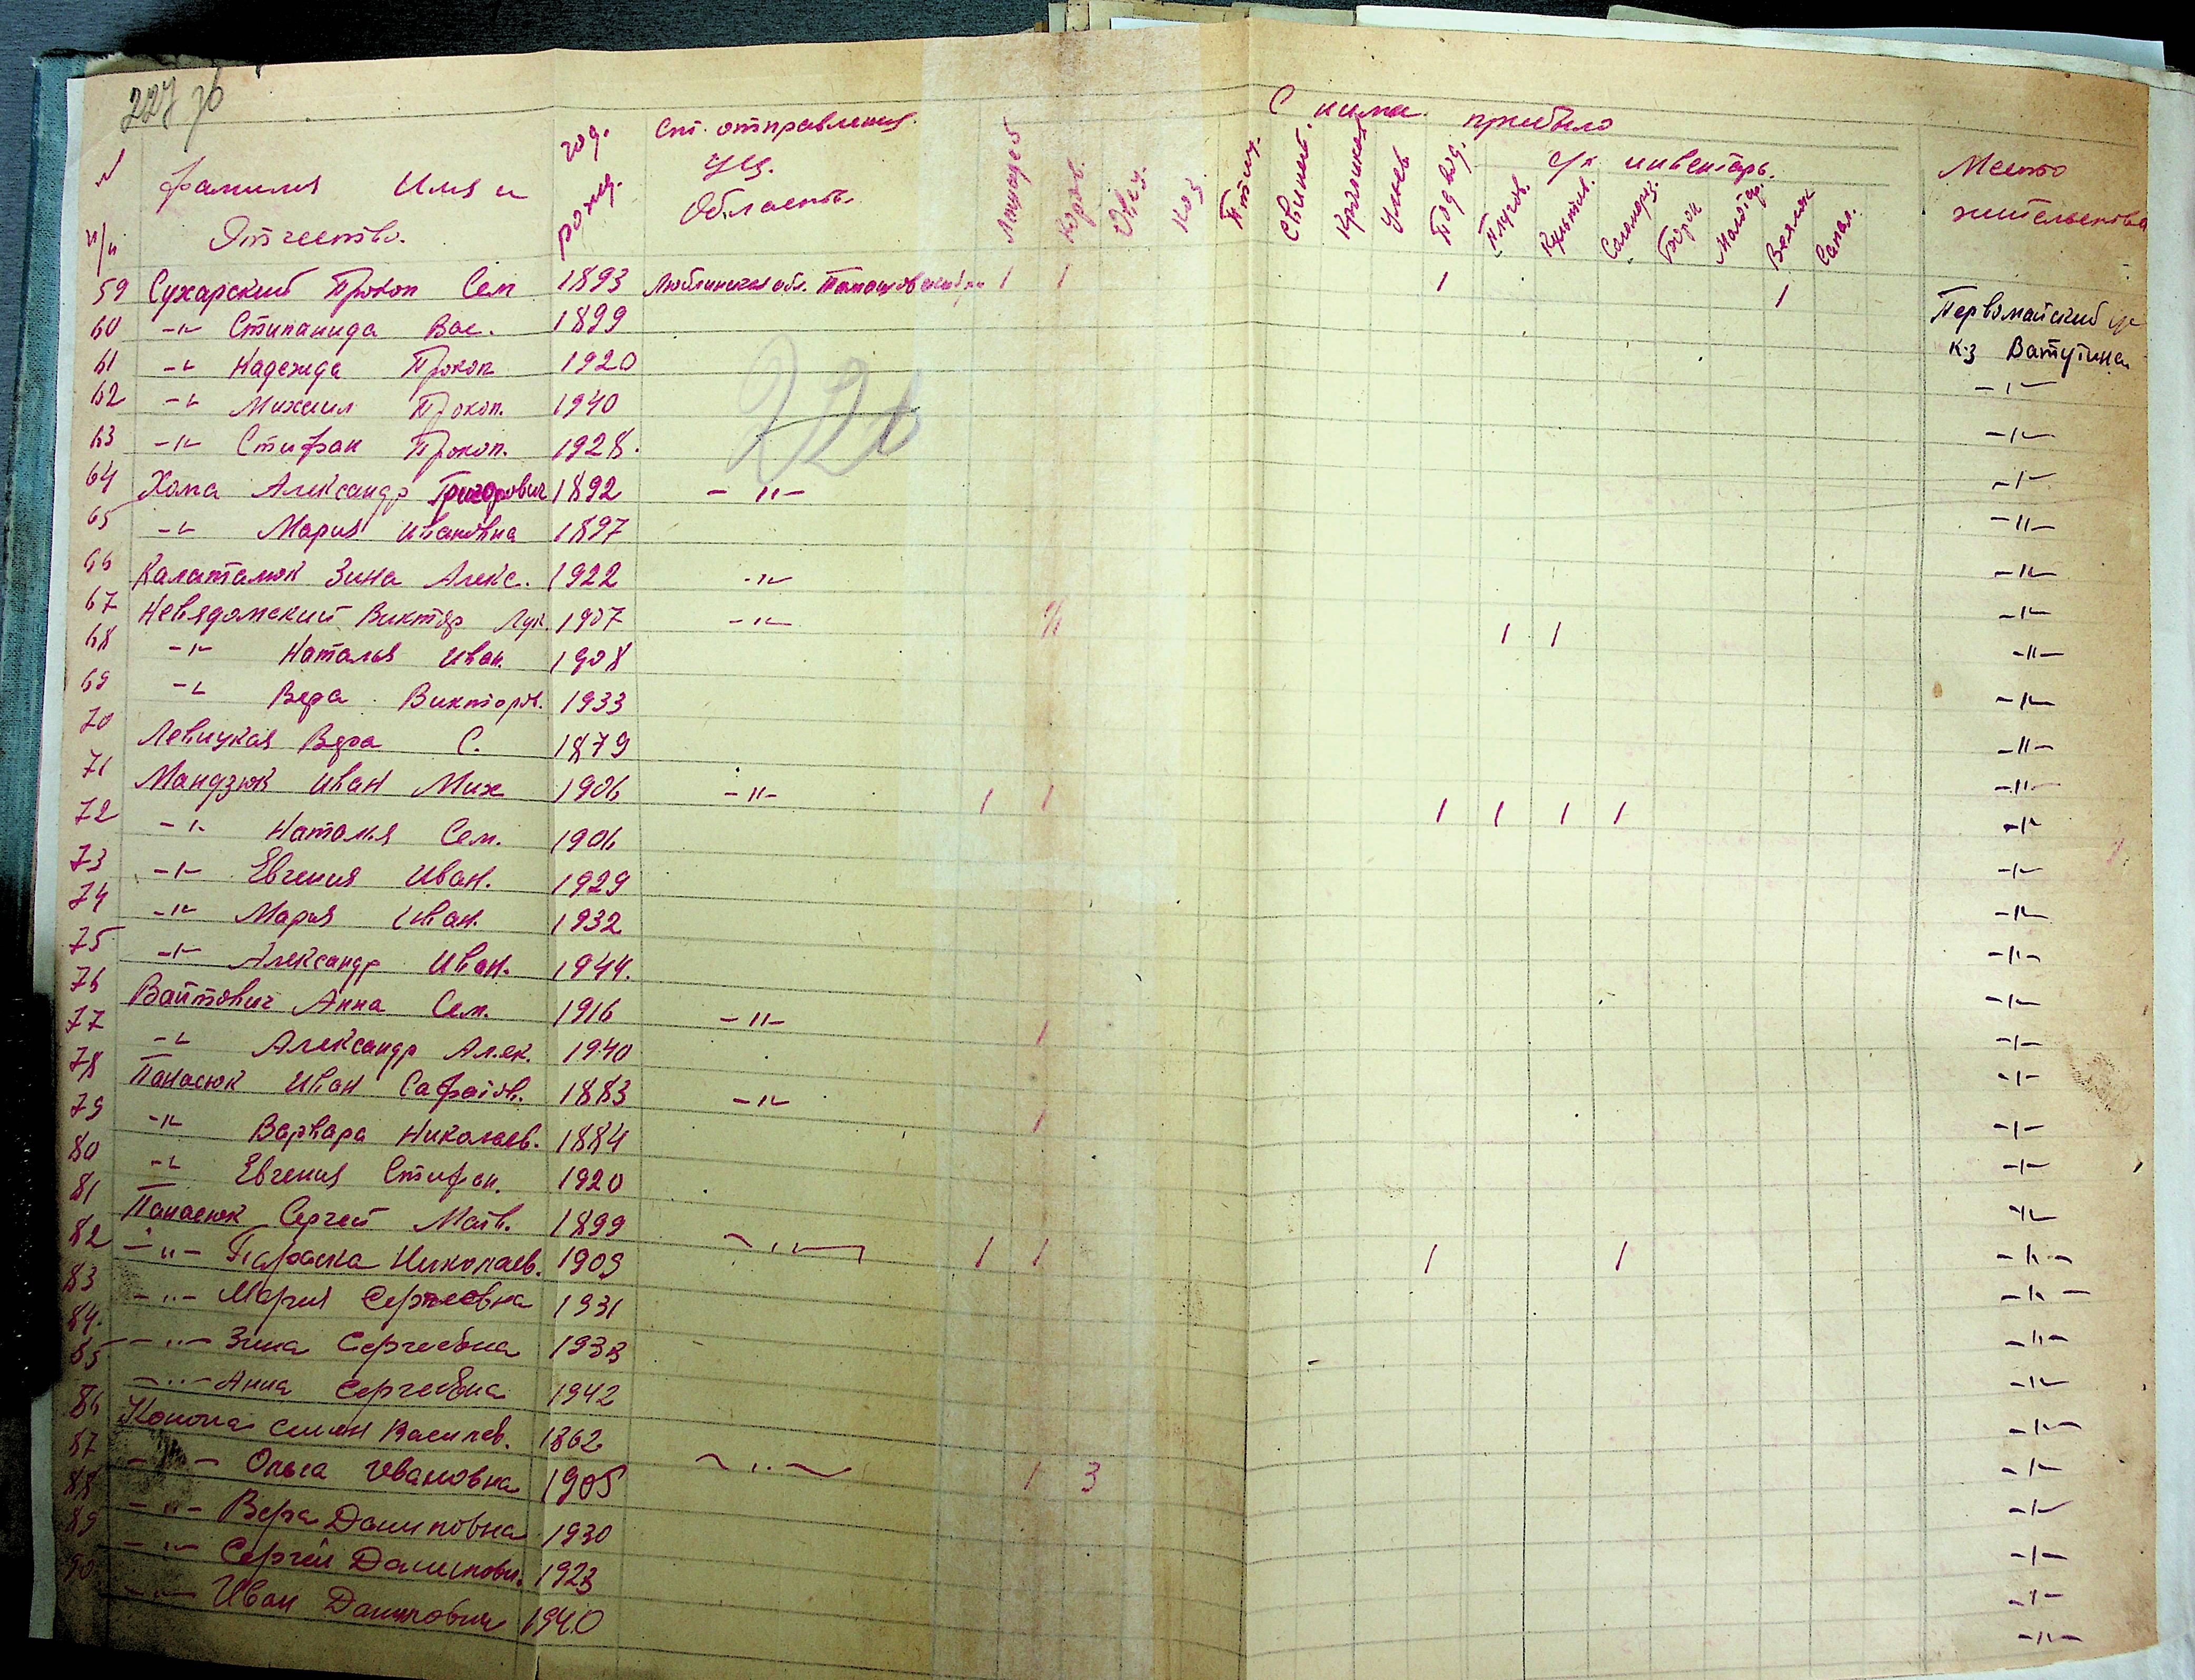 227 зв
226
С ними прибыло
№ п/п Фамилия Имя и Отчество. год. рожд. ст. отправления уц. Область. Лошадей Коров. Овец. Коз Птиц. Свиней. Кроликов Ульев Подвод. с/х инвентарь. Плугов. Культив. Соломорез. Борон Молотар. Веялок Сапал. Место жительства
59 Сухарский Прокоп Сем 1893 Люблинская обл. 1 1 1 1 Первомайский
60 -"- Стипанида Вас. 1899 к-з Ватутина
61 -"- Надежда Прокоп 1920 -"-
62 -"- Михаил Прокоп. 1940 -"-
63 -"- Стифан Прокоп. 1928. -"-
64 Хома Александр Григорович 1892 -"- -"-
65 -"- Мария Ивановна 1897 -"-
66 Калаталюк Зина Алекс. 1922 -"- -"-
67 Невядомский Виктор Лук. 1907 -"- 1 1 -"-
68 -"- Наталья Иван. 1908 -"-
69 -"- Вера Виктор. 1933 -"-
70 Левицкая Вера С. 1879 -"-
71 Мандзюк Иван Мих 1906 -"- 1 1 1 1 1 1 -"-
72 -"- Наталия Сем. 1906 -"-
73 -"- Евгения Иван. 1929 -"-
74 -"- Мария Иван. 1932 -"-
75 -"- Александр Иван. 1944. -"-
76 Вайтович Анна Сем. 1916 -"- 1 -"-
77 -"- Александр Алек. 1940 -"-
78 Панасюк Иван 1883 -"- 1 -"-
79 -"- Варвара Николаев. 1884 -"-
80 -"- Евгения Стифан. 1920 -"-
81 Панасюк Сергей Матв. 1899 -"- 1 1 1 1 -"-
82 -"- Параска Николаев. 1909 -"-
83 -"- Мария Сергеевна 1931 -"-
84. -"- Зина Сергеевна 1938 -"-
85 -"- Анна Сергеевна 1942 -"-
86 Василев. 1862 -"- 1 3 -"-
87 -"- Ольга Ивановна 1905 -"-
88 -"- Вера Даниловна 1930 -"-
89 -"- Сергей Данилович 1923 -"-
90 -"- Иван Данилович 1940 -"-